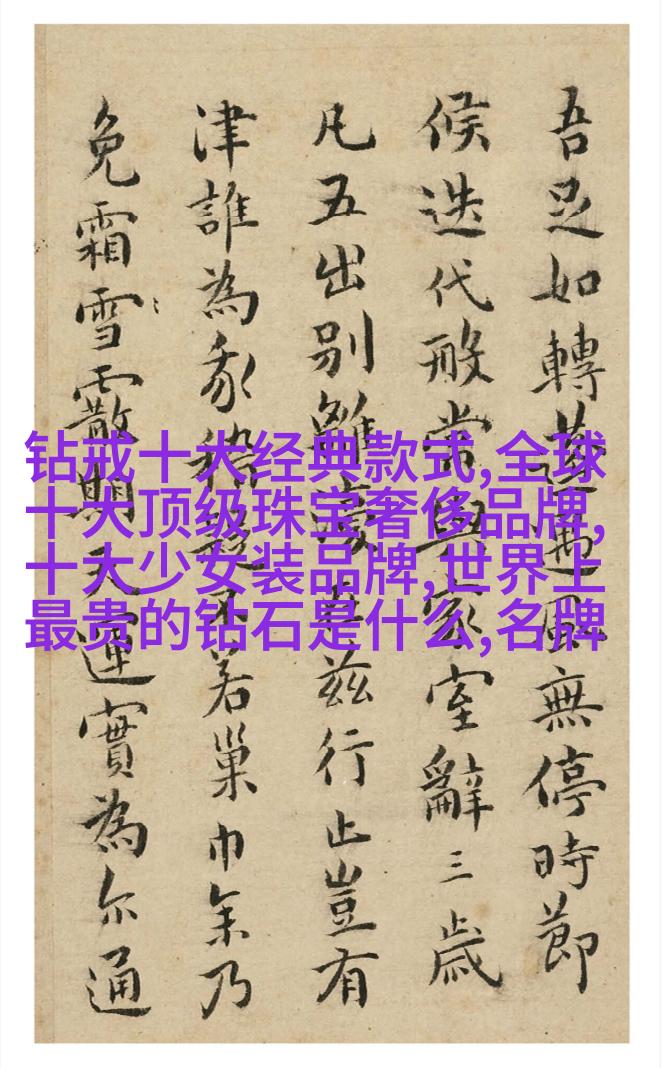 吾足如轉蓬遇風無停時節
候迭代般常與家室辭三歲
凡五出別雖茲行止豈有
津誰為稽疑不若巢巾乃
免霜雪霰期天運實為尔通
钻戒十大经典款式,全球
十大顶级珠宝奢侈品牌,
十大少女装品牌,世界上
最贵的钻石是什么,名牌